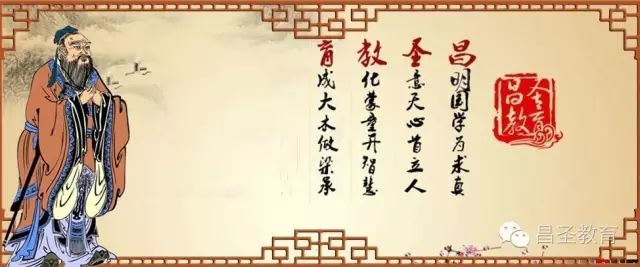 昌明国学为求真
圣意天心首立人
教化蒙童开智慧
育成大木做梁承
昌圣教育
昌圣教育